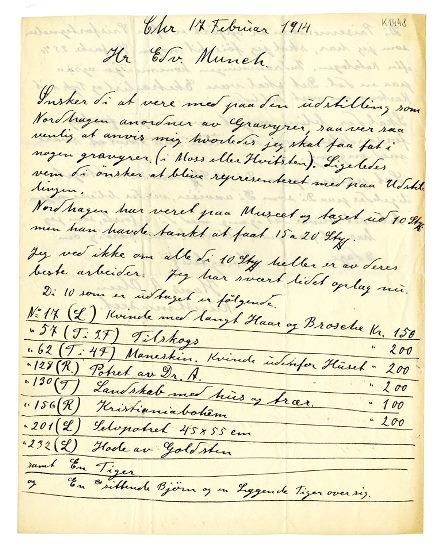 K 1448
Chr 17 Februar 1914
Hr Edv Munch.
Ønsker di at vere med paa den udstilling som
Nordhagen anordner av Gravyrer, saa ver saa
venlig at anvis mig hvorledes jeg skal faa fat i
nogen gravyrer. (i Moss eller Hvitsten). Ligeledes
vem di ønsker at blive representeret med paa Udstil
lingen.
Nordhagen har veret paa Museet og taget ud 10 Sty
men han havde tankt at faat 15 a 20 Sty
Jeg ved ikke om alle di 10 Sty heller er av deres
beste arbeider. Jeg har svært lidet oplag nu.
Di 10 som er udtaget er følgende.
No 17 (L) Kvinde med langt Haar og Brosche Kr. 150
" 57 (T: 27) Tilskogs " 200
" 62 (T: 47) Maneskin. Kvinde udenfor Huset " 200
" 128 (R) Potret av Dr. A. " 200
" 130 (T) Landskab med hus og træer. " 100
" 156 (R) Kristianiabohem " 200
" 201 (L) Selvpotret 45x55 cm
" 232 (L) Hode av Goldsten
samt En Tiger
og En sittende Björn og en Liggende Tiger over sig.